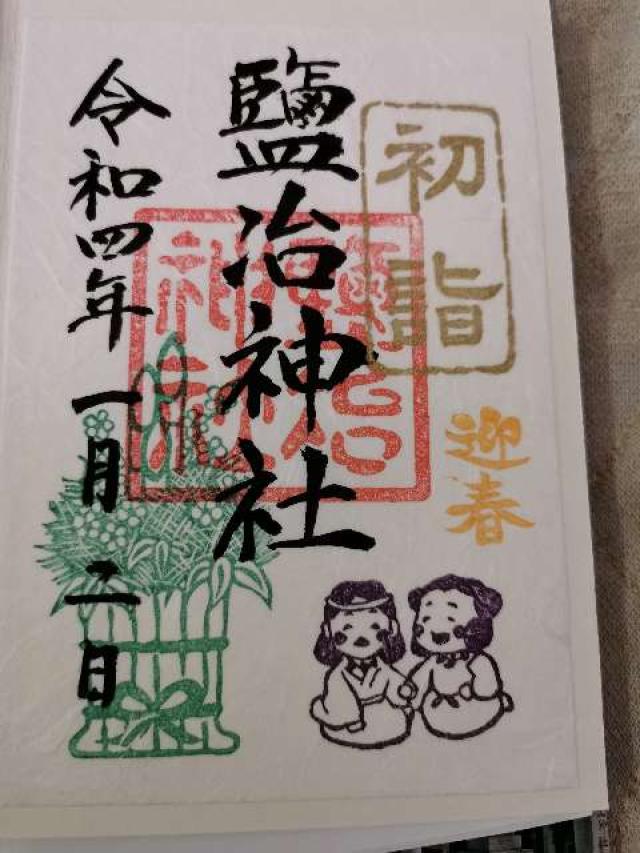 初詣
迎春
鹽冶神社
鹽冶神社
令和四年一月二日